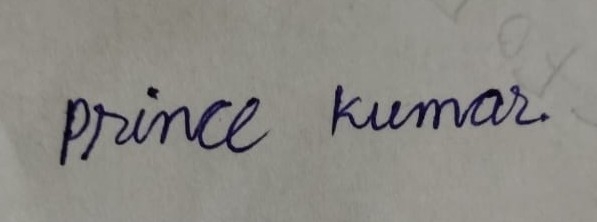 Prince Kumar.